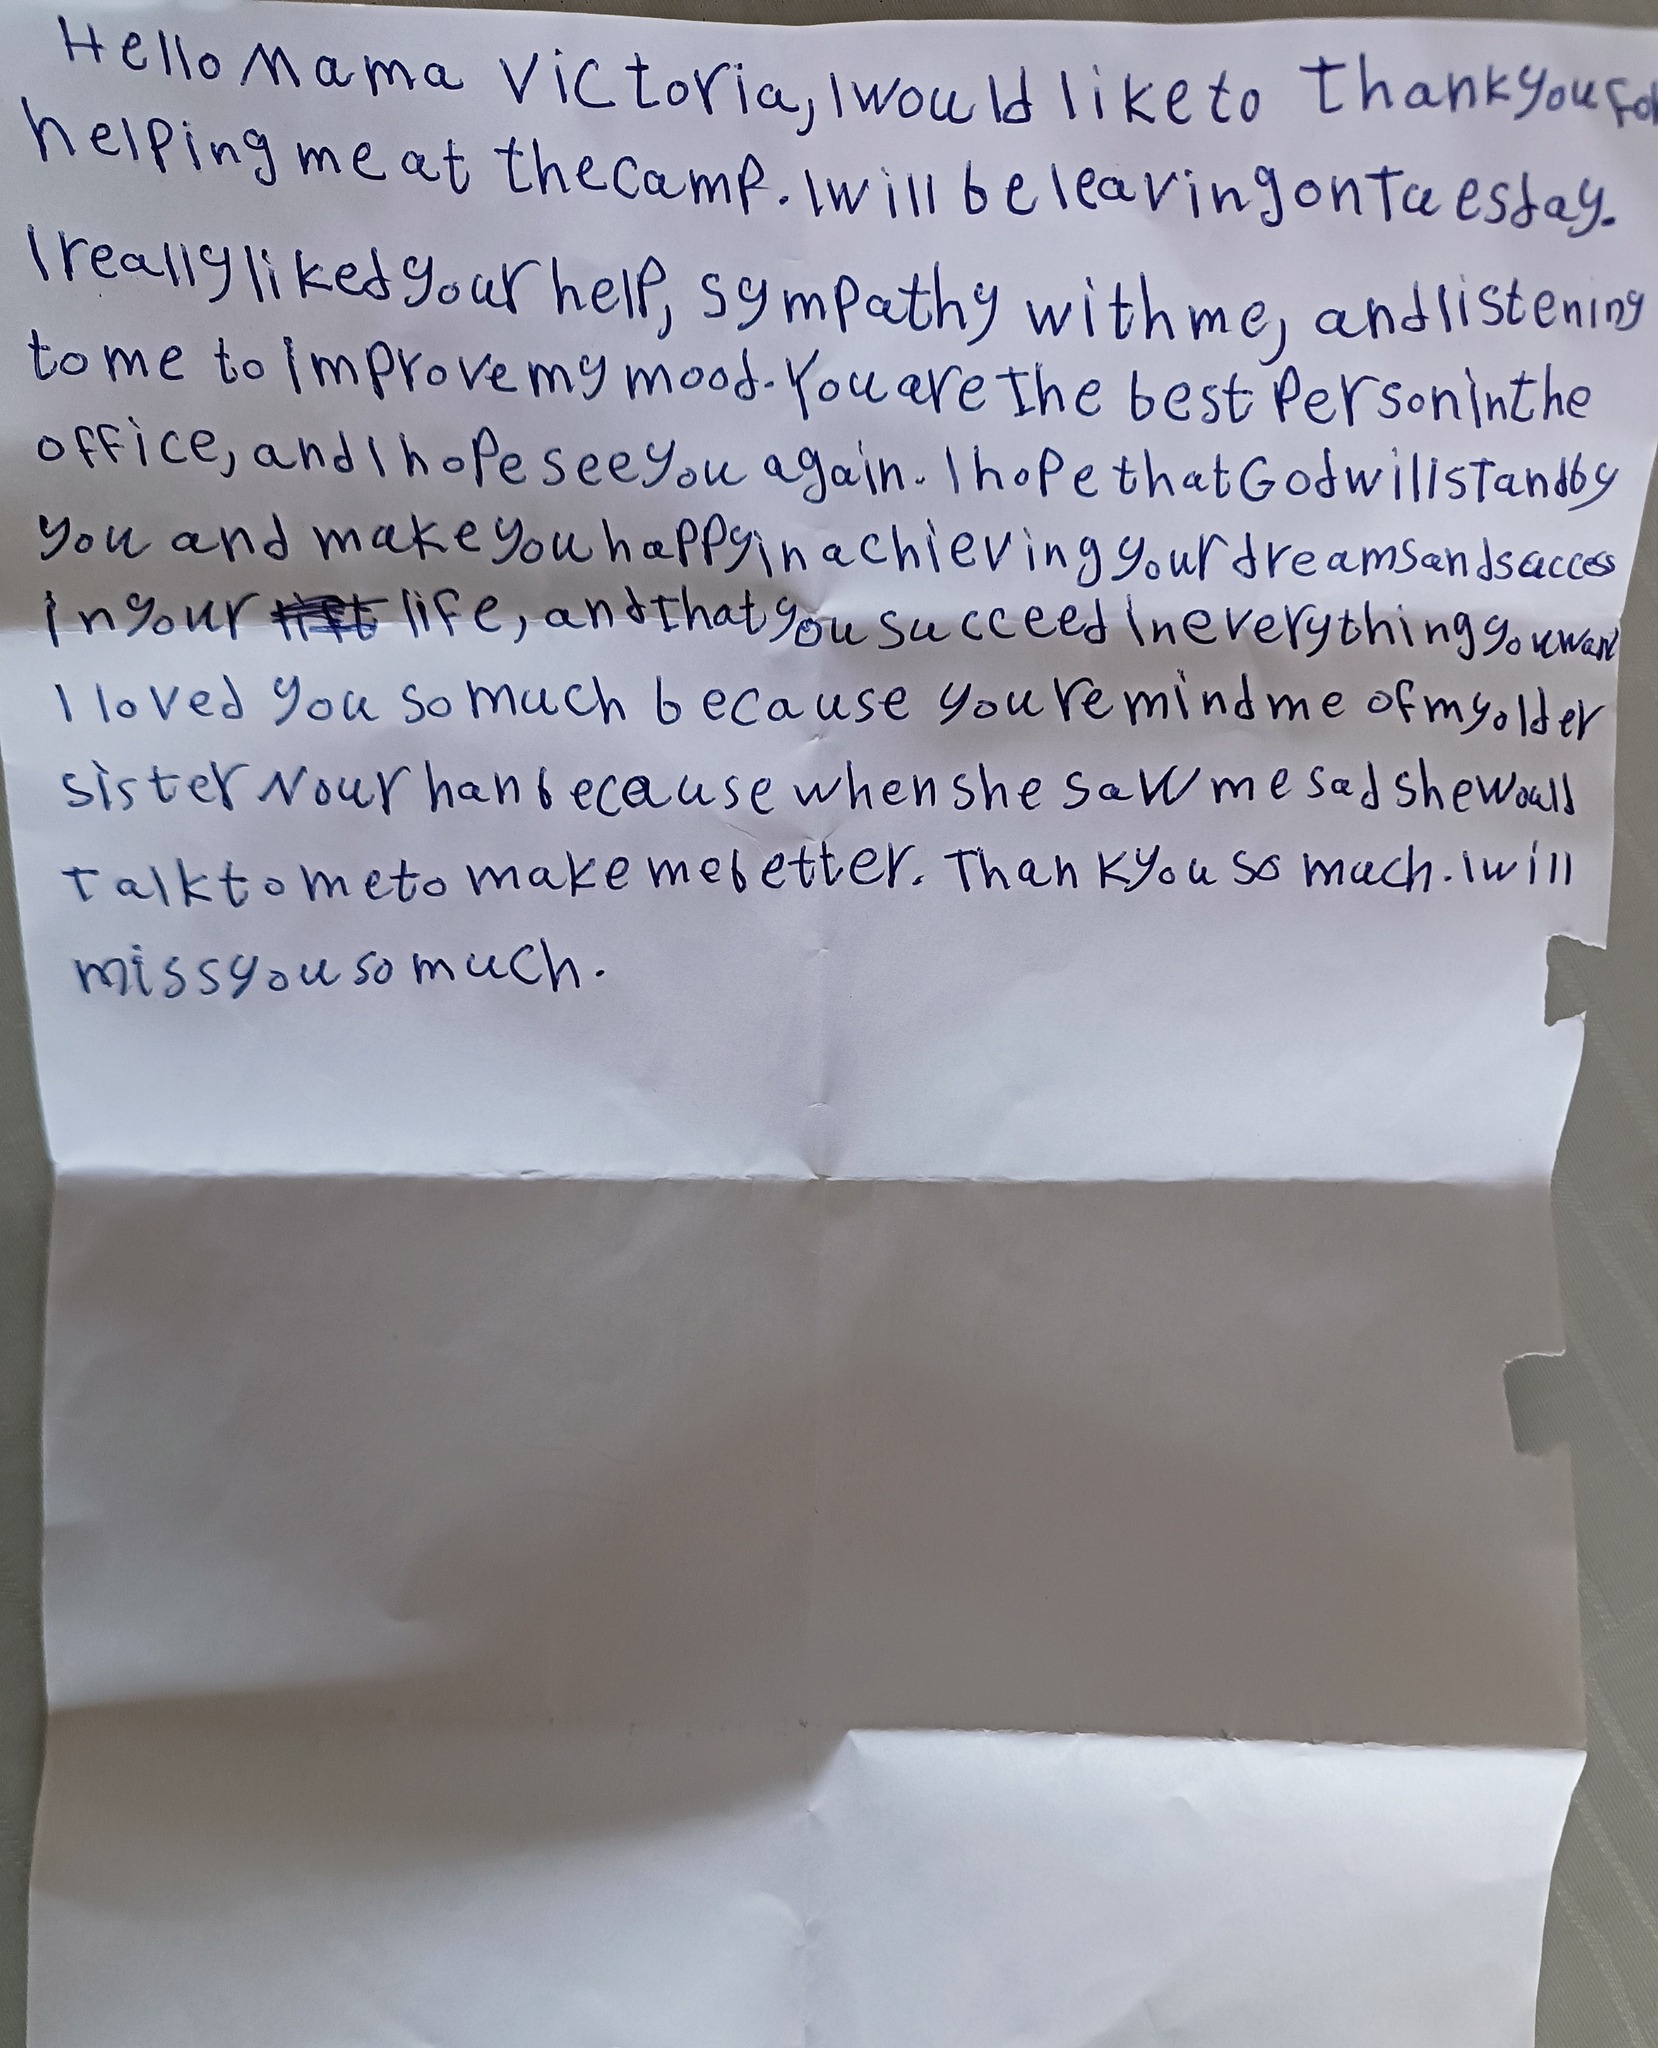 Hello Mama Victoria, I would like to thank you for
helping me at the camp. I will be leaving on Tuesday.
I really liked your help, sympathy with me, and listening
to me to improve my mood. You are the best person in the
office, and I hope see you again. I hope that God will stand by
you and make you happy in achieving your dreams and success
in your life, and that you succeed in everything you want
I loved you so much because you remind me of my older
sister Nourhan because when she saw me sad she would
talk to me to make me better. Thank you so much. I will
miss you so much.